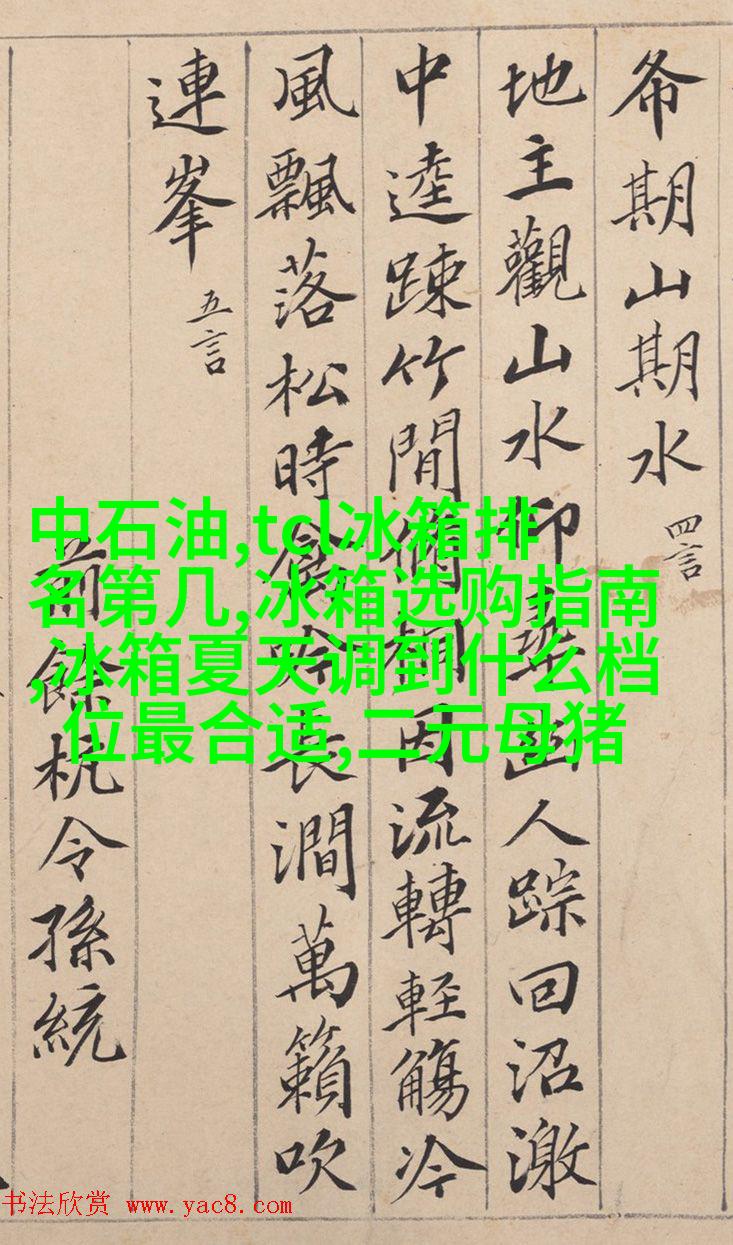 希期山期水 四言
地主觀山水仰尋幽人踪回沼激
中逵踈竹間脩桐因流轉輕觴冷
風飄落松時禽吟長澗萬籟吹
連峯 五言
前餘杭令孫統
中石油,tcl冰箱排
名第几,冰箱选购指南
,冰箱夏天调到什么档
位最合适,二元母猪
书法欣赏 www.yac8.com